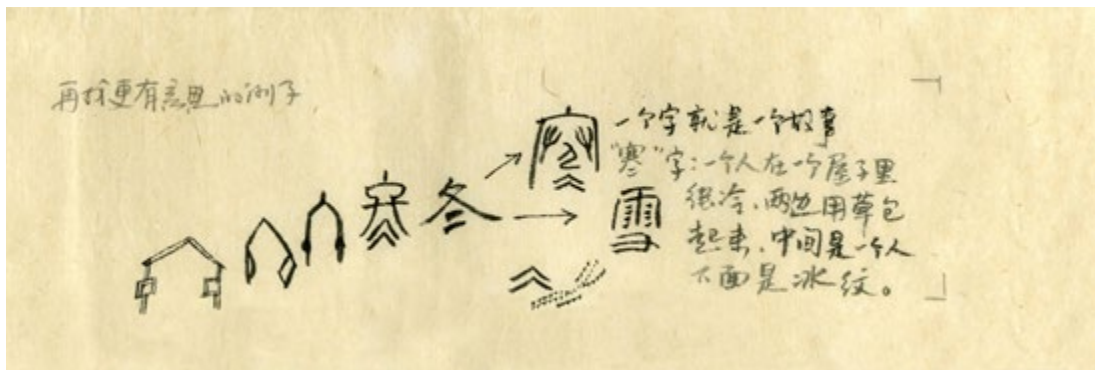 再找更有意思的例子
寒 冬
寒
雪
一个字就是一个故事
"寒"字:一个人在一个屋子里
很冷、两边用草包
起来、中间是一个人
下面是冰纹。